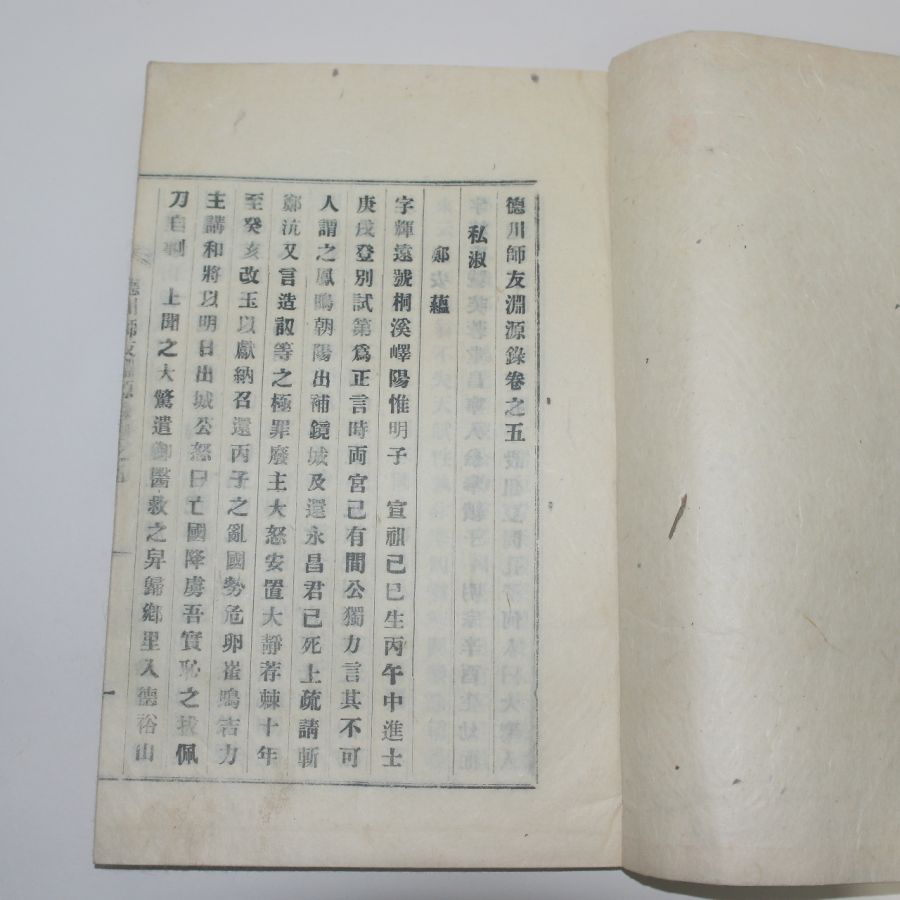 德川師友淵源錄卷之五
私淑
鄭蘊
字輝遠號桐溪嶧陽惟明子 宣祖己巳生丙午中進士
庚戌登別試第爲正言時両宮已有間公獨力言其不可
人謂之鳳鳴朝陽出補鏡城及還永昌君已死上疏請斬
鄭沆又言造訒等之極罪廢主大怒安置大靜荐棘十年
至癸亥改玉以獻納召還丙子之亂國勢危卵崔鳴吉力
主講和將以明日出城公怒曰亡國降虜吾實恥之拔佩
刀自刺 上聞之大驚遣御醫救之舁歸鄉里入德裕山
德川師友淵源